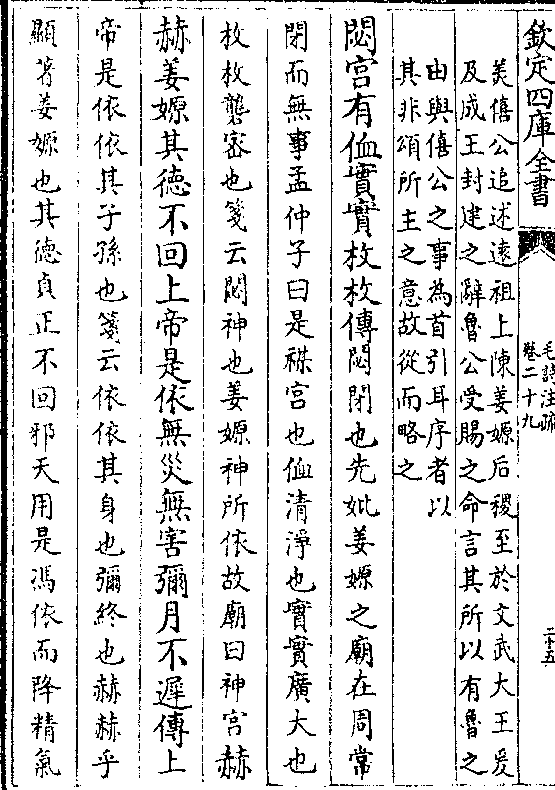 欽定四庫全書
毛詩注疏
卷二十九
二十五
美僖公追述遠祖上陳姜嫄后稷至於文武大王爰
及成王封建之辭魯公受賜之命言其所以有魯之
由與僖公之事為首引耳序者以
其非頌所主之意故從而略之
閟宮有侐實實枚枚傳閟閉也先妣姜嫄之廟在周常
閉而無事孟仲子曰是禖宮也侐清淨也實實廣大也
枚枚礱密也箋云閟神也姜嫄神所依故廟曰神宮赫
赫姜嫄其徳不回上帝是依無災無害彌月不遲傳上
帝是依依其子孫也箋云依依其身也彌終也赫赫乎
顯著姜嫄也其徳貞正不回邪天用是馮依而降精氣